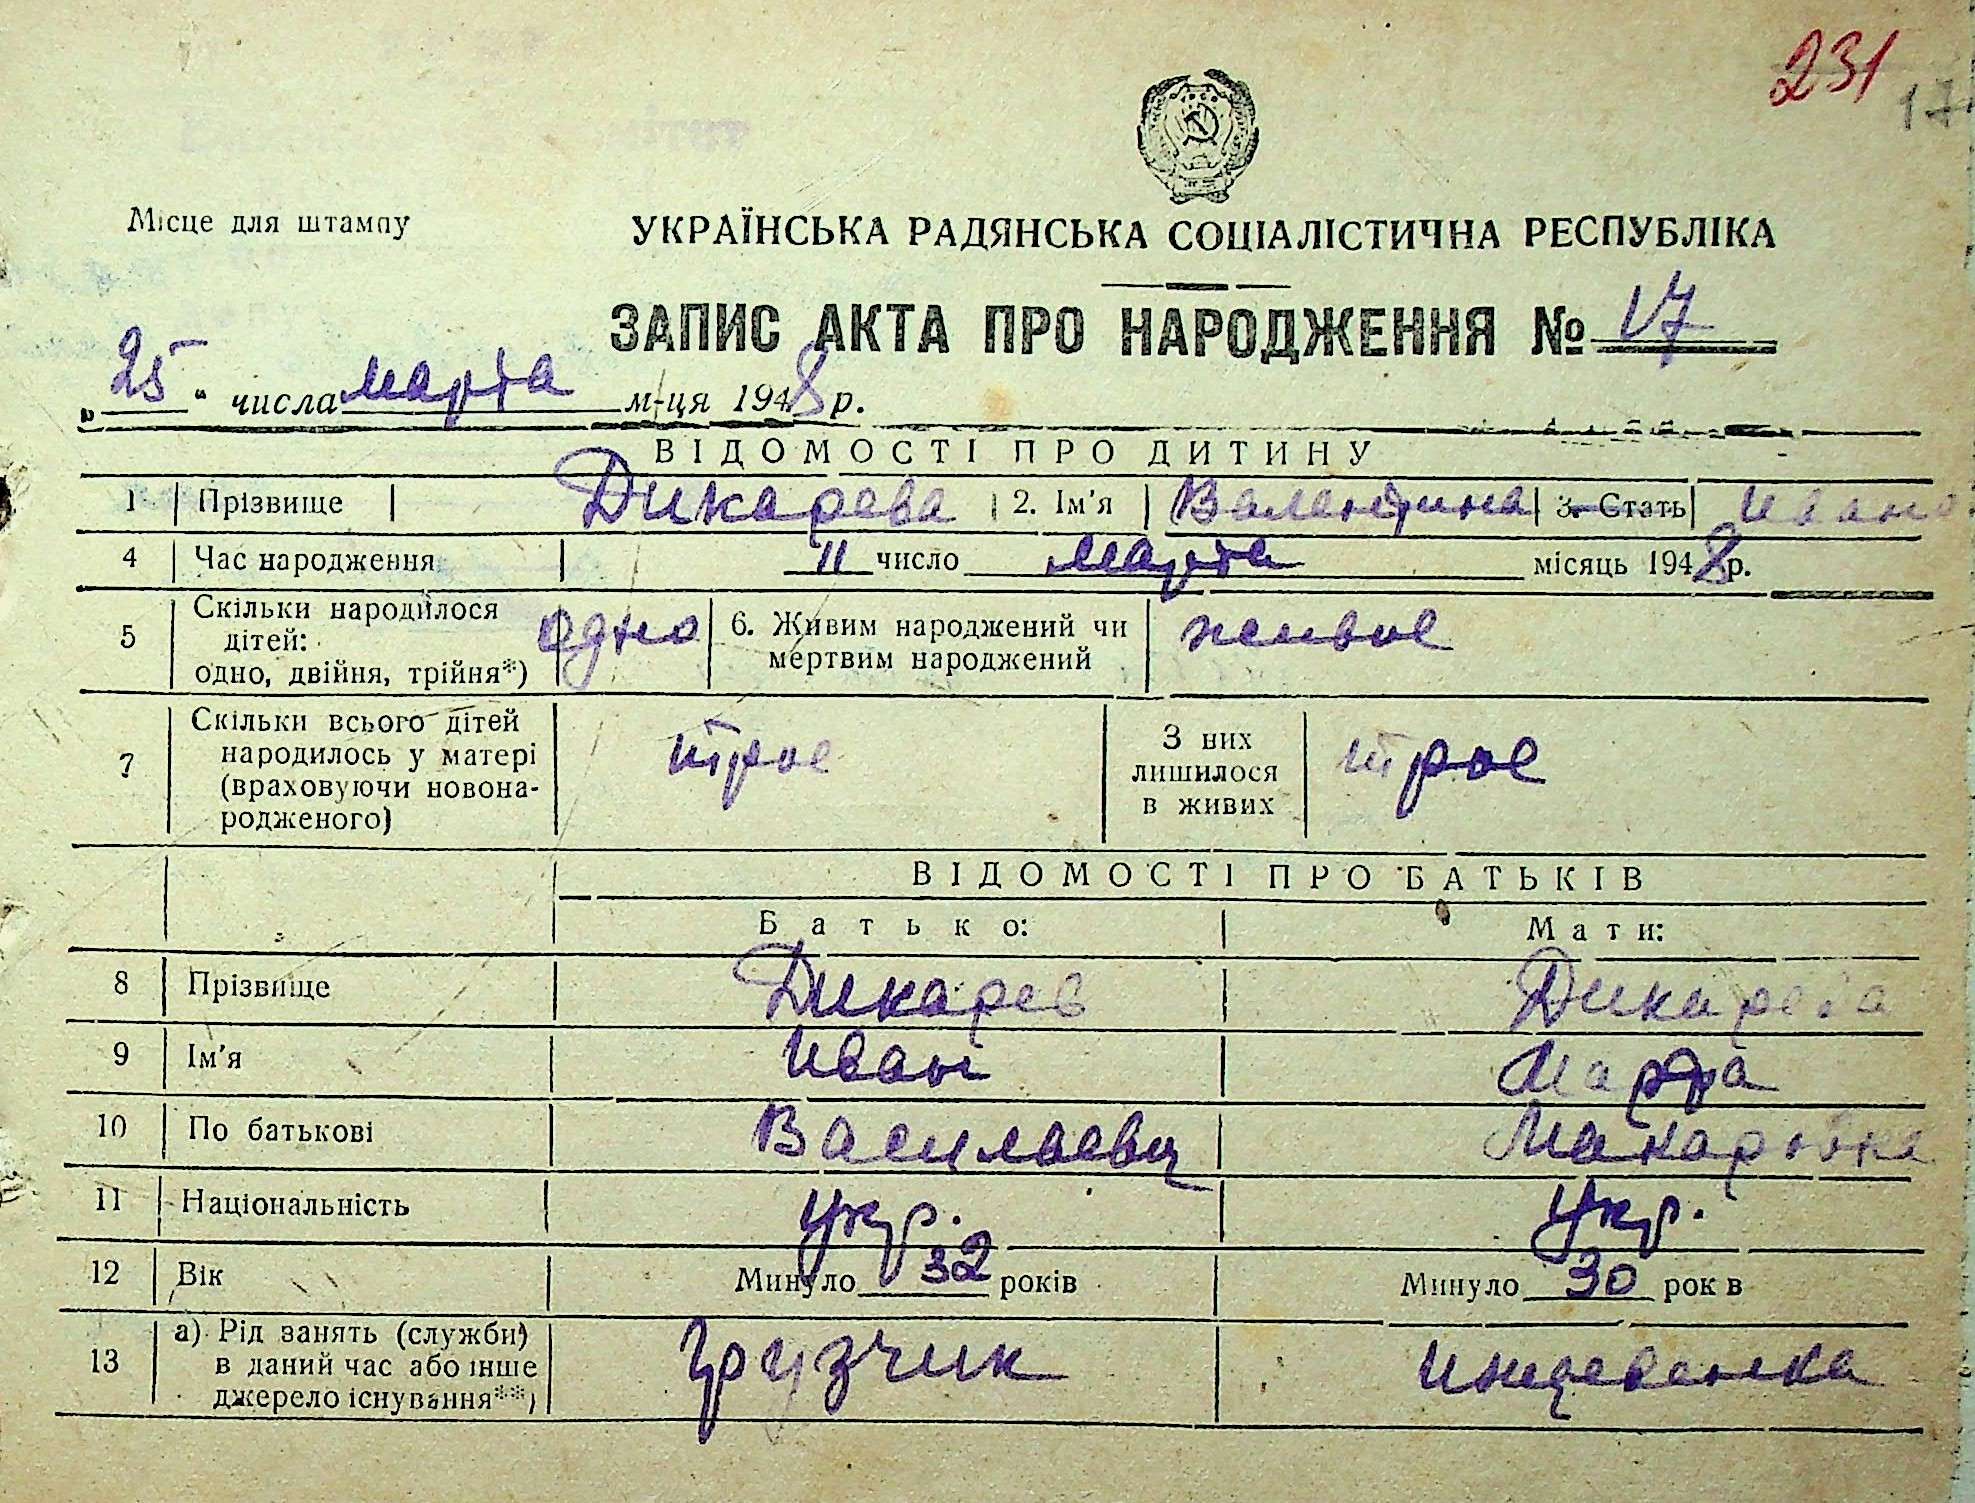 231
17
Місце для штампу
УКРАЇНСЬКА РАДЯНСЬКА СОЦІАЛІСТИЧНА РЕСПУБЛІКА
ЗАПИС АКТА ПРО НАРОДЖЕННЯ № 17
„25“ числа марта м-ця 1948 р.
ВІДОМОСТІ ПРО ДИТИНУ
1 Прізвище Дикарева 2. Ім'я Валентина 3. Стать Ивано
4 Час народження 11 число марта місяць 1948 р.
5 Скільки народилося дітей: одно, двійня, трійня*) одно 6. Живим народжений чи мертвим народжений живое
7 Скільки всього дітей народилось у матері (враховуючи новонародженого) трое З них лишилося в живих трое
ВІДОМОСТІ ПРО БАТЬКІВ
Батько: Мати:
8 Прізвище Дикарев Дикарева
9 Ім'я Иван Марфа
10 По батькові Василаевич Макаровна
11 Національність укр. укр.
12 Вік Минуло 32 років Минуло 30 рок в
13 а) Рід занять (служби) в даний час або інше джерело існування**) Грузчик